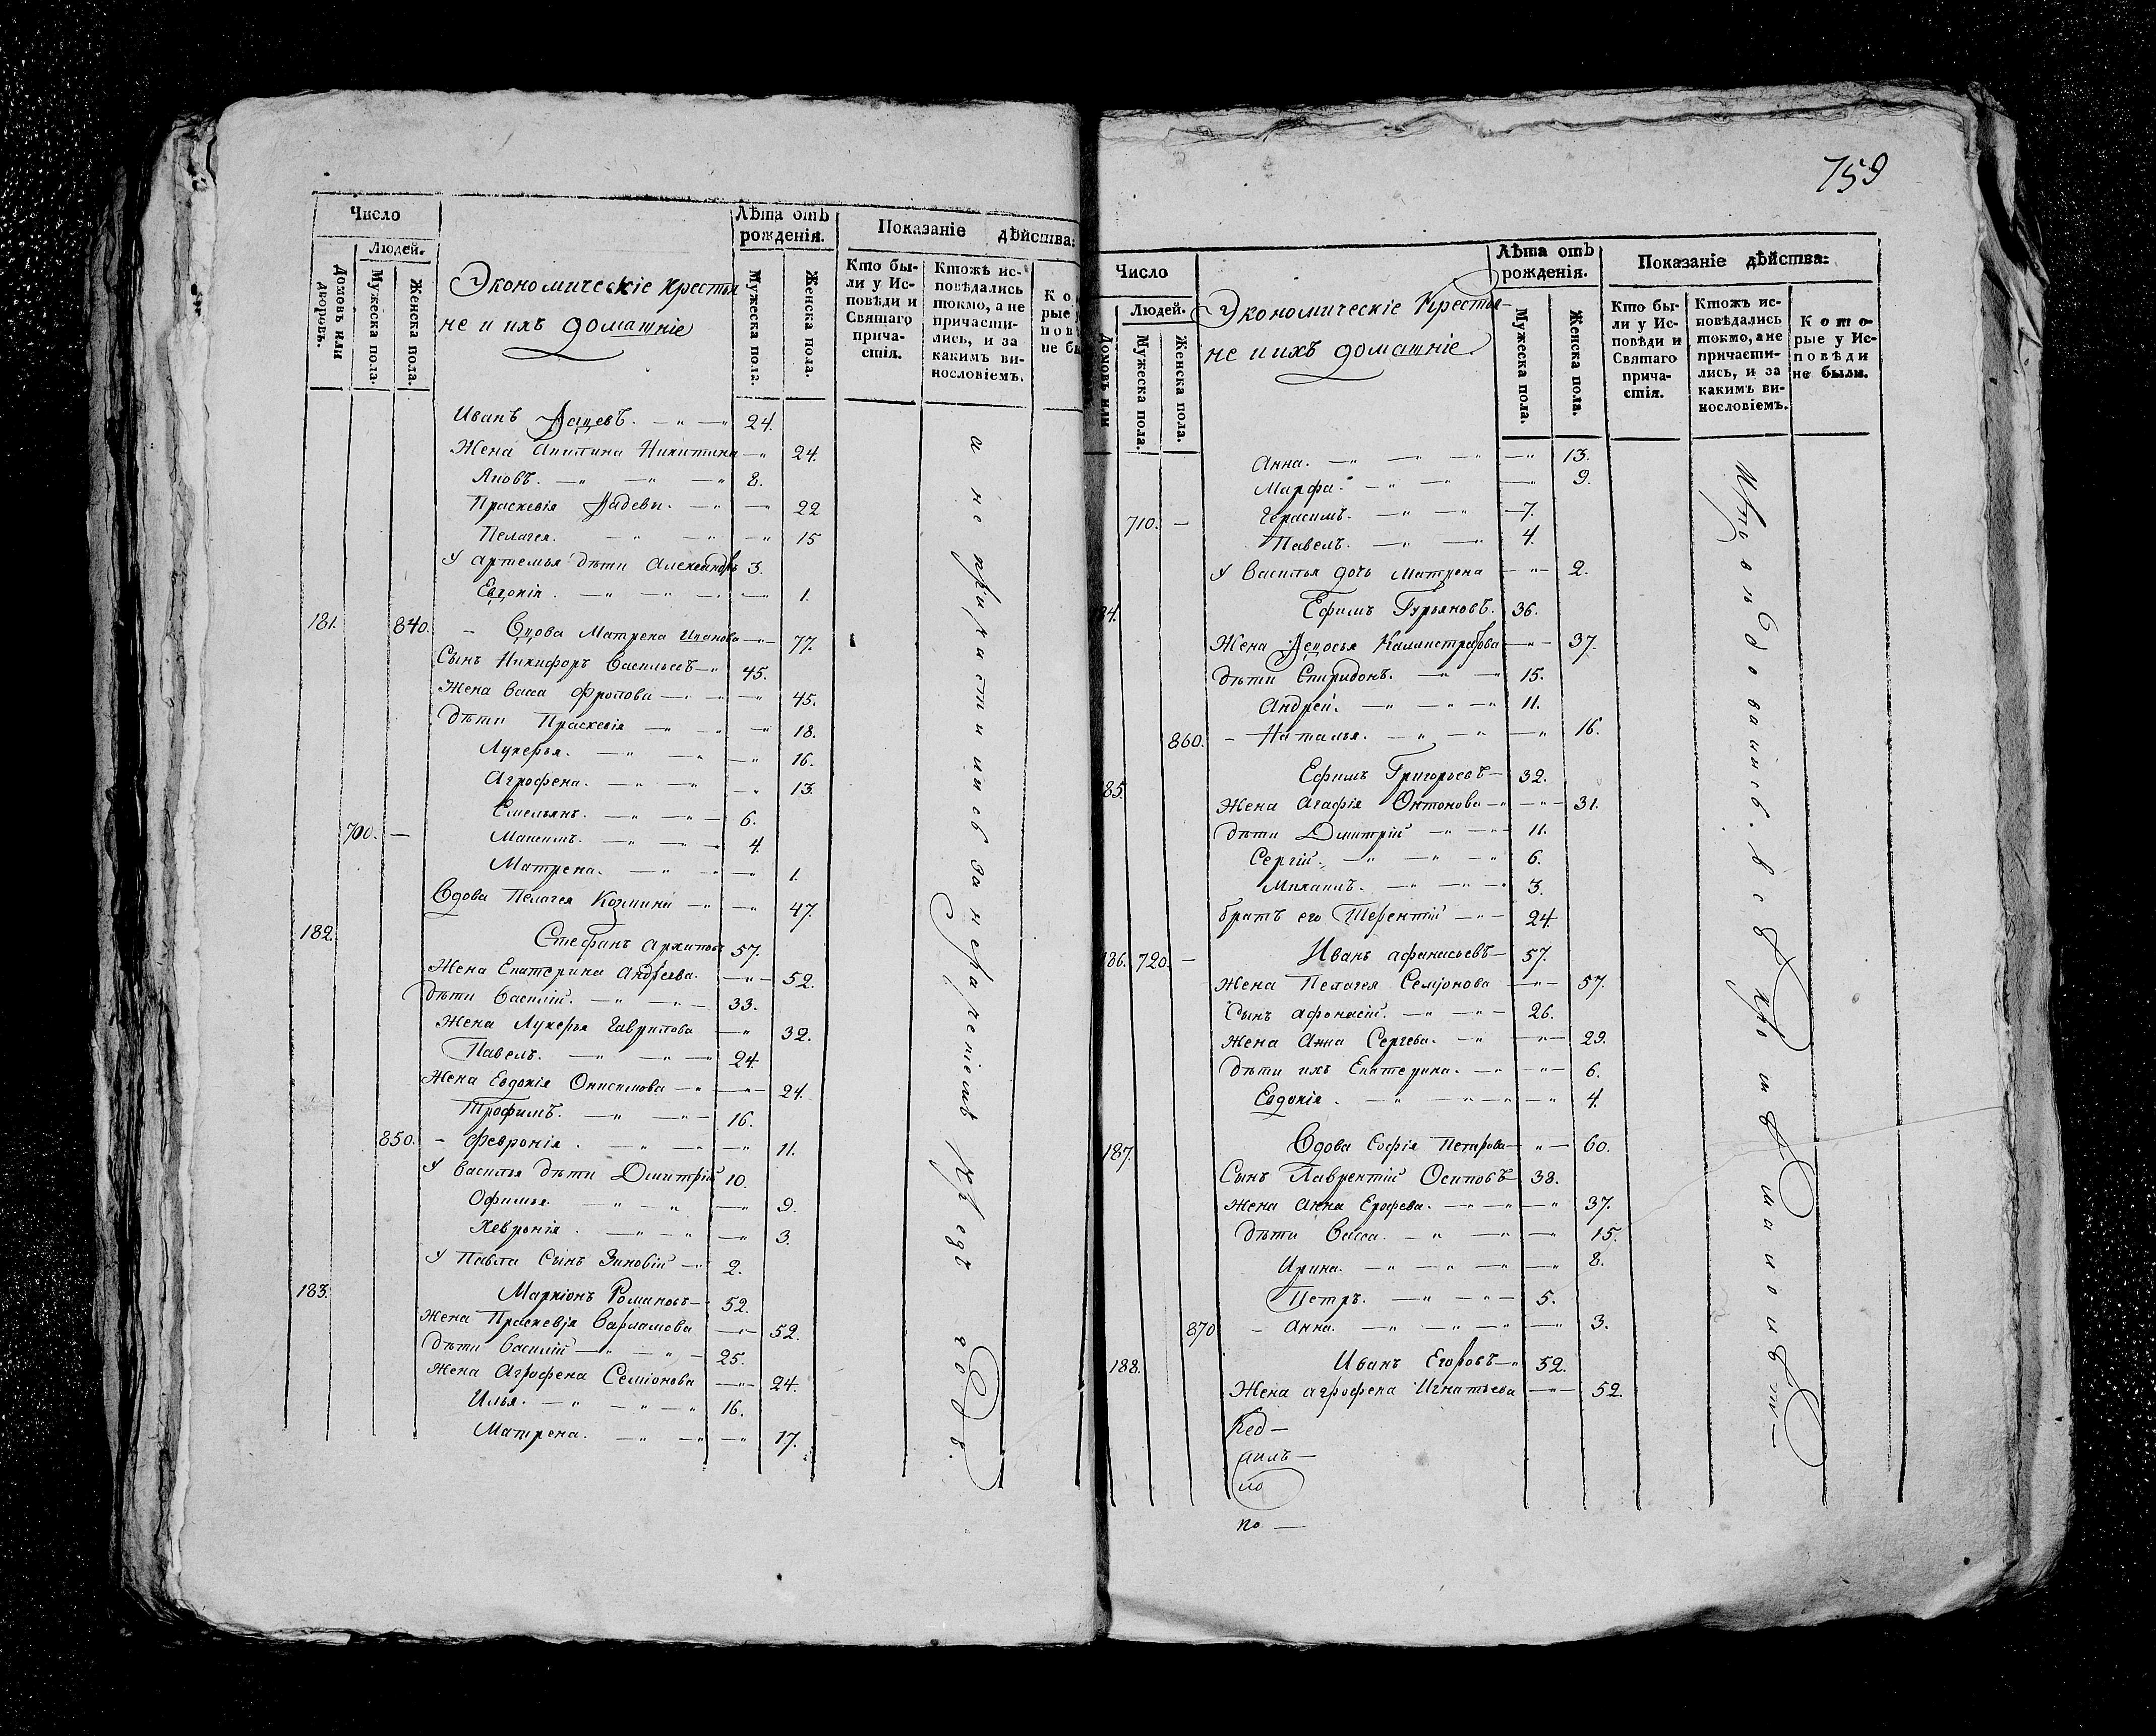 Число
Людей.
Домовъ или дворовъ.
Мужеска пола.
Женска пола.
Экономическіе крестья
не и ихъ домашніе
Лѣта отъ
рожденія.
Мужеска пола.
Женска пола.
Показаніе дѣйства:
Кто бы-
ли у Ис-
повѣди и
Святаго
прича-
стія.
Ктожъ ис-
повѣдались
токмо, а не
причасти-
лись, и за
какимъ ви-
нословіемъ.
Иванъ 24.
Жена Никитина 24.
Яковъ. 8.
Праскевія 22
Пелагея. 15
У артемья дѣти Александръ 3.
Евдокія. 1.
181. 840. Вдова Матрена Иванова 77.
Сынъ Никифоръ Васильевъ 45.
Жена Васса Фролова 45.
Дѣти Праскевія 18.
Лукерья. 16.
Агрофена. 13.
Емельянъ. 6.
700. Максимъ. 4.
Матрена. 1.
Вдова Пелагея Козмина 47.
182. Стефанъ Архиповъ 57.
Жена Екатерина Андрѣева. 52.
Дѣти Василій. 33.
Жена Лукерья Гаврилова 32.
Павелъ. 24.
Жена Евдокія Онисимова 24.
Трофимъ. 16.
850. Февронія. 11.
У Василья дѣти Дмитрій 10.
Офимья. 9.
Хевронія. 3.
У Павла Сынъ Зиновій 2.
183. Маркіонъ Романовъ 52.
Жена Праскевія Варламова 52.
Дѣти Василій 25.
Жена Агрофена Семіонова 24.
Илья. 16.
Матрена. 17.
а не причастились за нераченіемъ
759
Число
Людей.
Домовъ или
Мужеска пола.
Женска пола.
Экономическіе Крестья-
не и ихъ домашніе.
Лѣта отъ
рожденія.
Мужеска пола.
Женска пола.
Показаніе дѣйства:
Кто бы-
ли у Ис-
повѣди и
Святаго
прича-
стія.
Ктожъ ис-
повѣдались
токмо, а не
причасти-
лись, и за
какимъ ви-
нословіемъ.
Кото-
рые у Ис-
повѣди
не были.
Анна. 13.
Марфа. 9.
710. Герасимъ. 7.
Павелъ. 4.
У Василья дочь Матрена 2.
84. Ефимъ Гурьяновъ. 36.
Жена Калистратова 37.
Дѣти Спиридонъ. 15.
Андрей. 11.
860. Наталья. 16.
85. Ефимъ Григорьевъ 32.
Жена Агафія Онтонова 31.
Дѣти Дмитрій 11.
Сергій. 6.
Михаилъ. 3.
братъ его Терентій 24.
186. 720. Иванъ афанасьевъ 57.
Жена Пелагея Семіонова 57.
Сынъ афонасій. 26.
Жена Анна Сергева. 29.
Дѣти ихъ Екатерина. 6.
Евдокія. 4.
187. Вдова Софія Петрова 60.
Сынъ Лаврентій Осиповъ 38.
Жена Анна Ерофева. 37.
Дѣти Васса. 15.
Ирина. 8.
Петръ. 5.
870 Анна. 3.
188. Иванъ Егоровъ 52.
Жена агрофена Игнатьева 52.
по